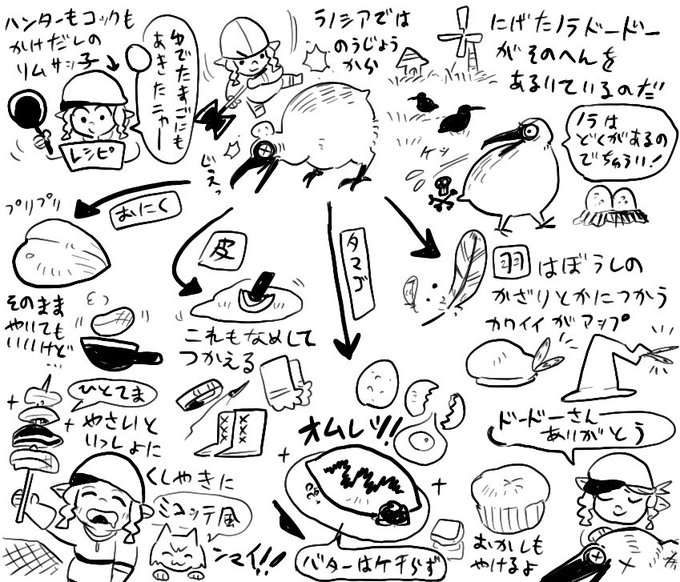 ハンターもコックも
かけだしの
リムサッ子
レシピ
ゆでたまごにも
あきたニャー
じぇっ
ラノシアでは
のうじょう
から
にげたノラドードー
がそのへんを
あるいているのだ
ノラは
どくがあるの
でちゅうい!
ケッ
プリプリ
おにく
そのまま
やいても
いいけど
ひとてま
やさいと
いっしょに
くしやきに
ミコッテ風
ンマイ!!
皮
これもなめして
つかえる
タマゴ
オムレツ!!
バターはケチらず
羽
はぼうしの
かざりとかにつかう
カワイイがアップ
ドードーさん
ありがとう
おかしも
やけるよ